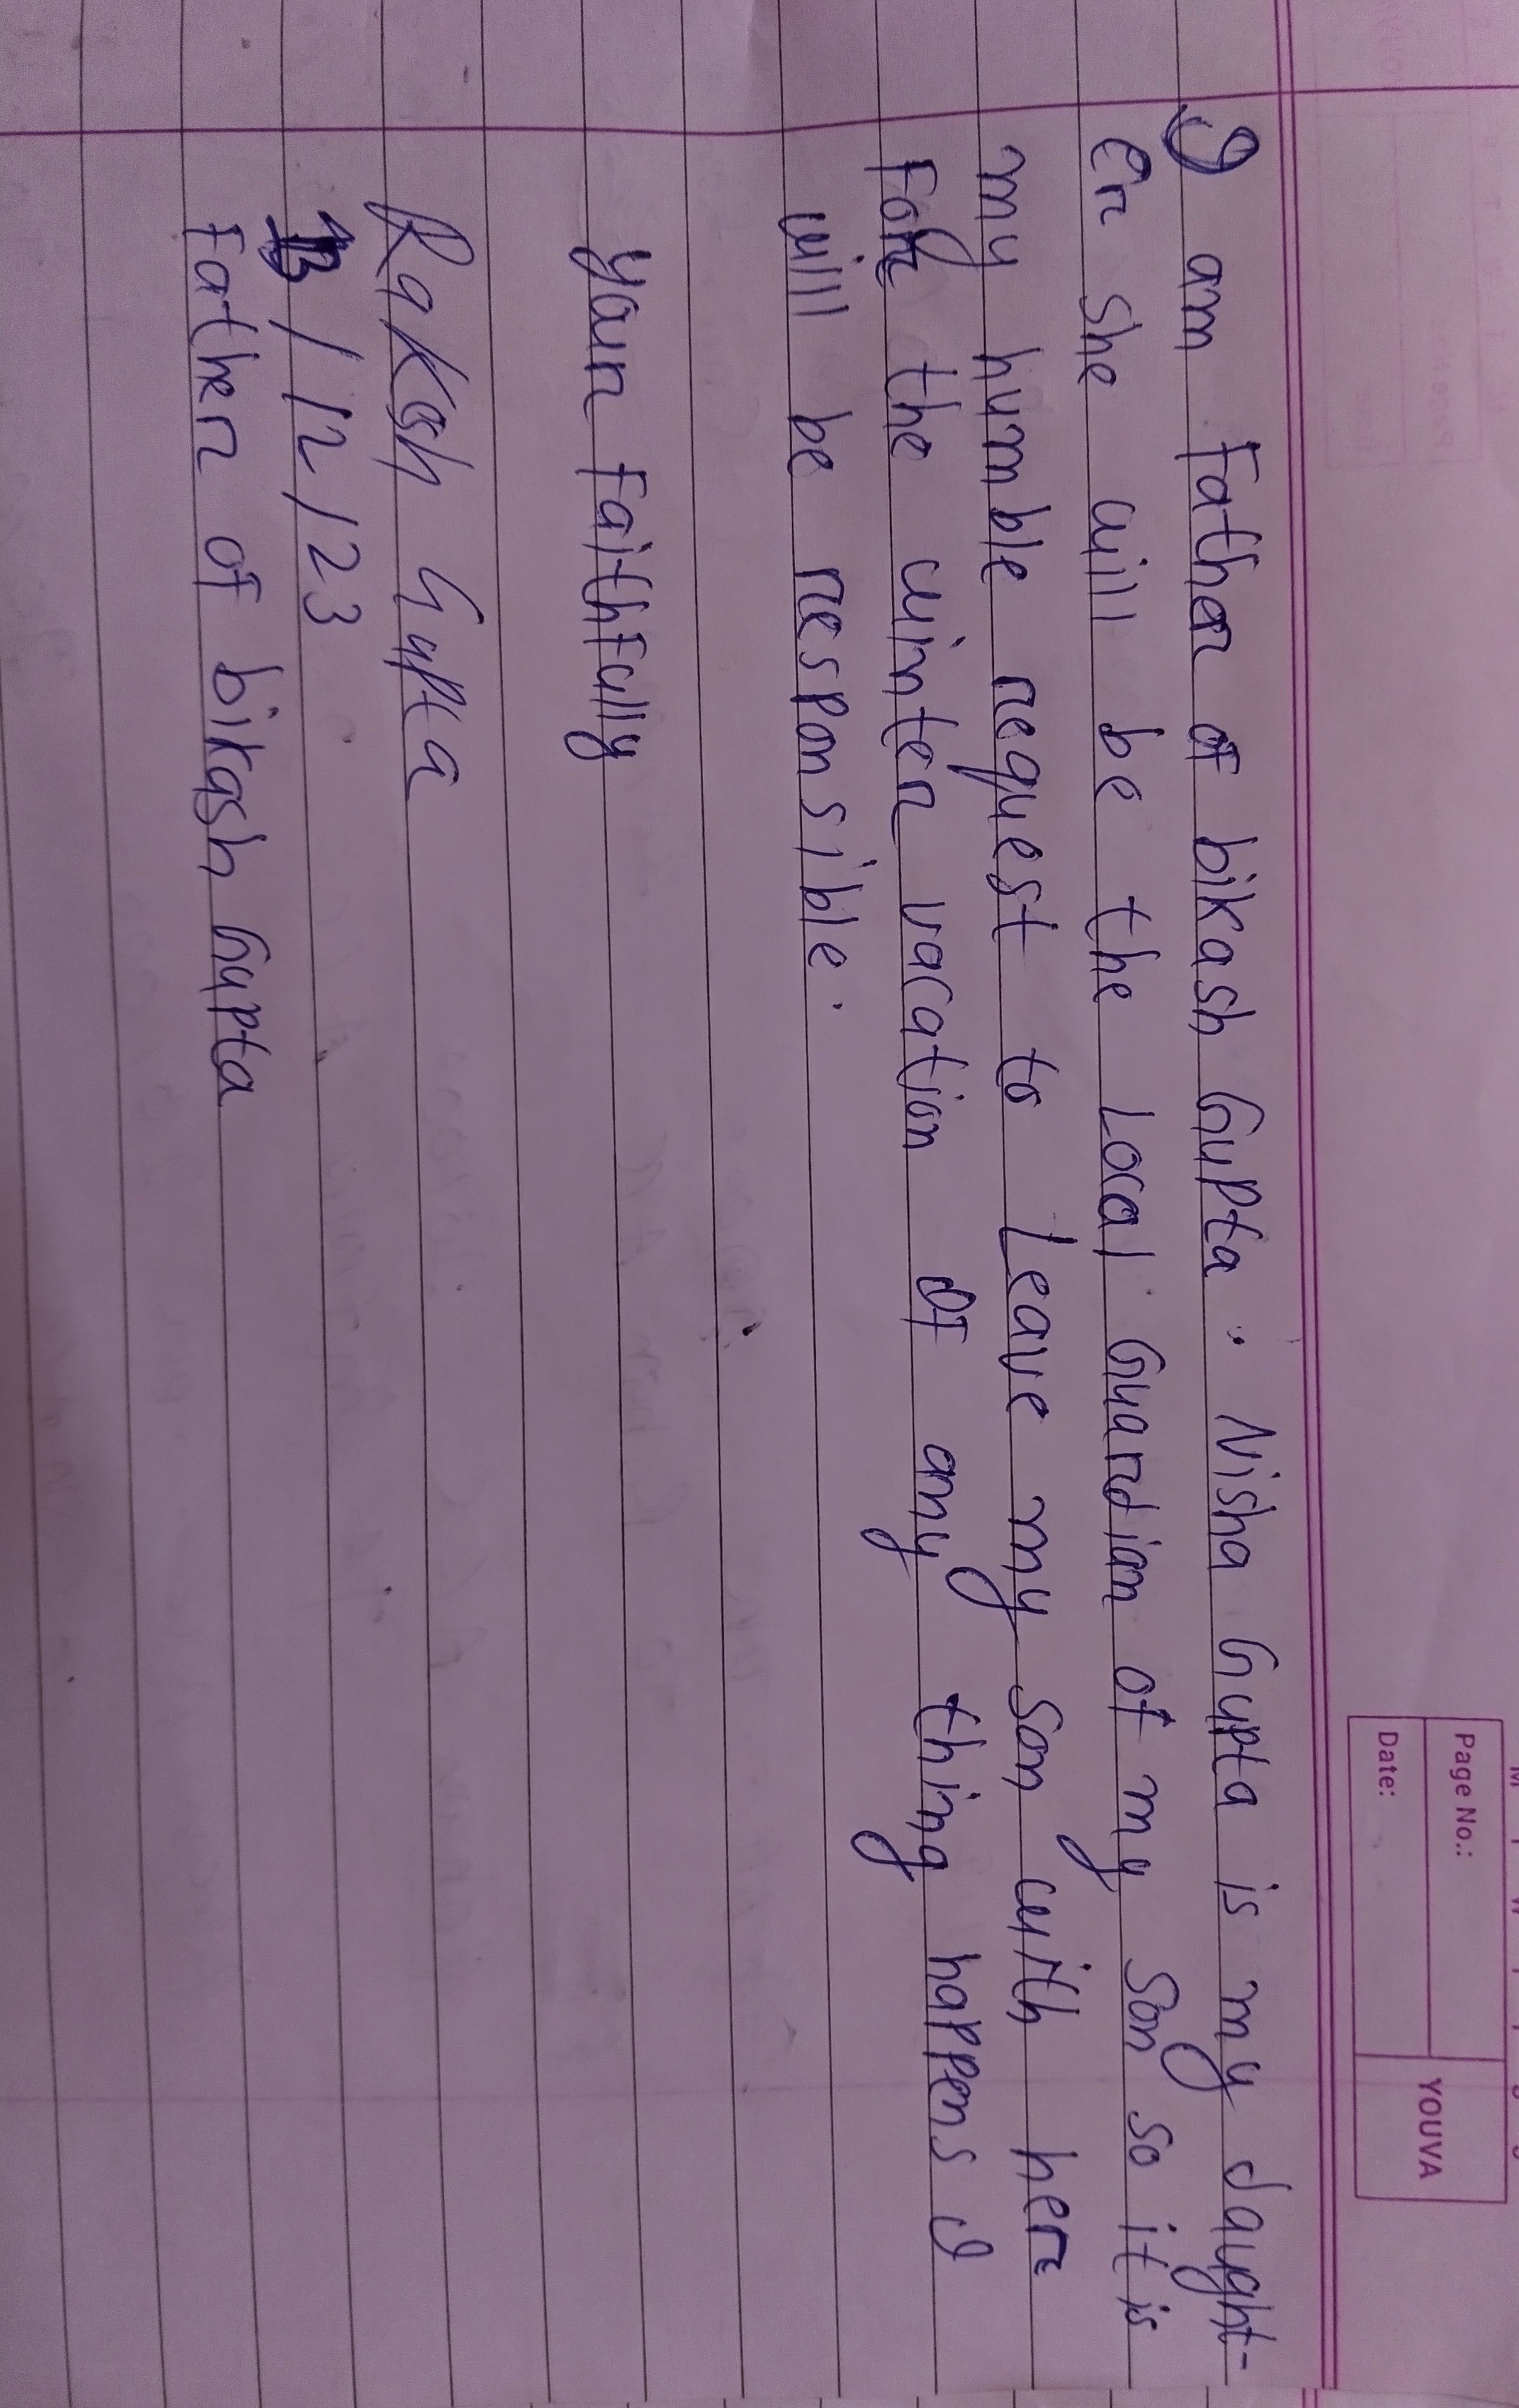 Page No.:
Date:
YOUVA
I am Father of bikash Gupta. Nisha Gupta is my daught-
er she will be the Local Guardian of my son so it is
my humble request to Leave my son with her
For the winter vacation If any thing happens I
will be responsible.
your Faithfully
Rakash Gupta
/12/23
Father of bikash Gupta